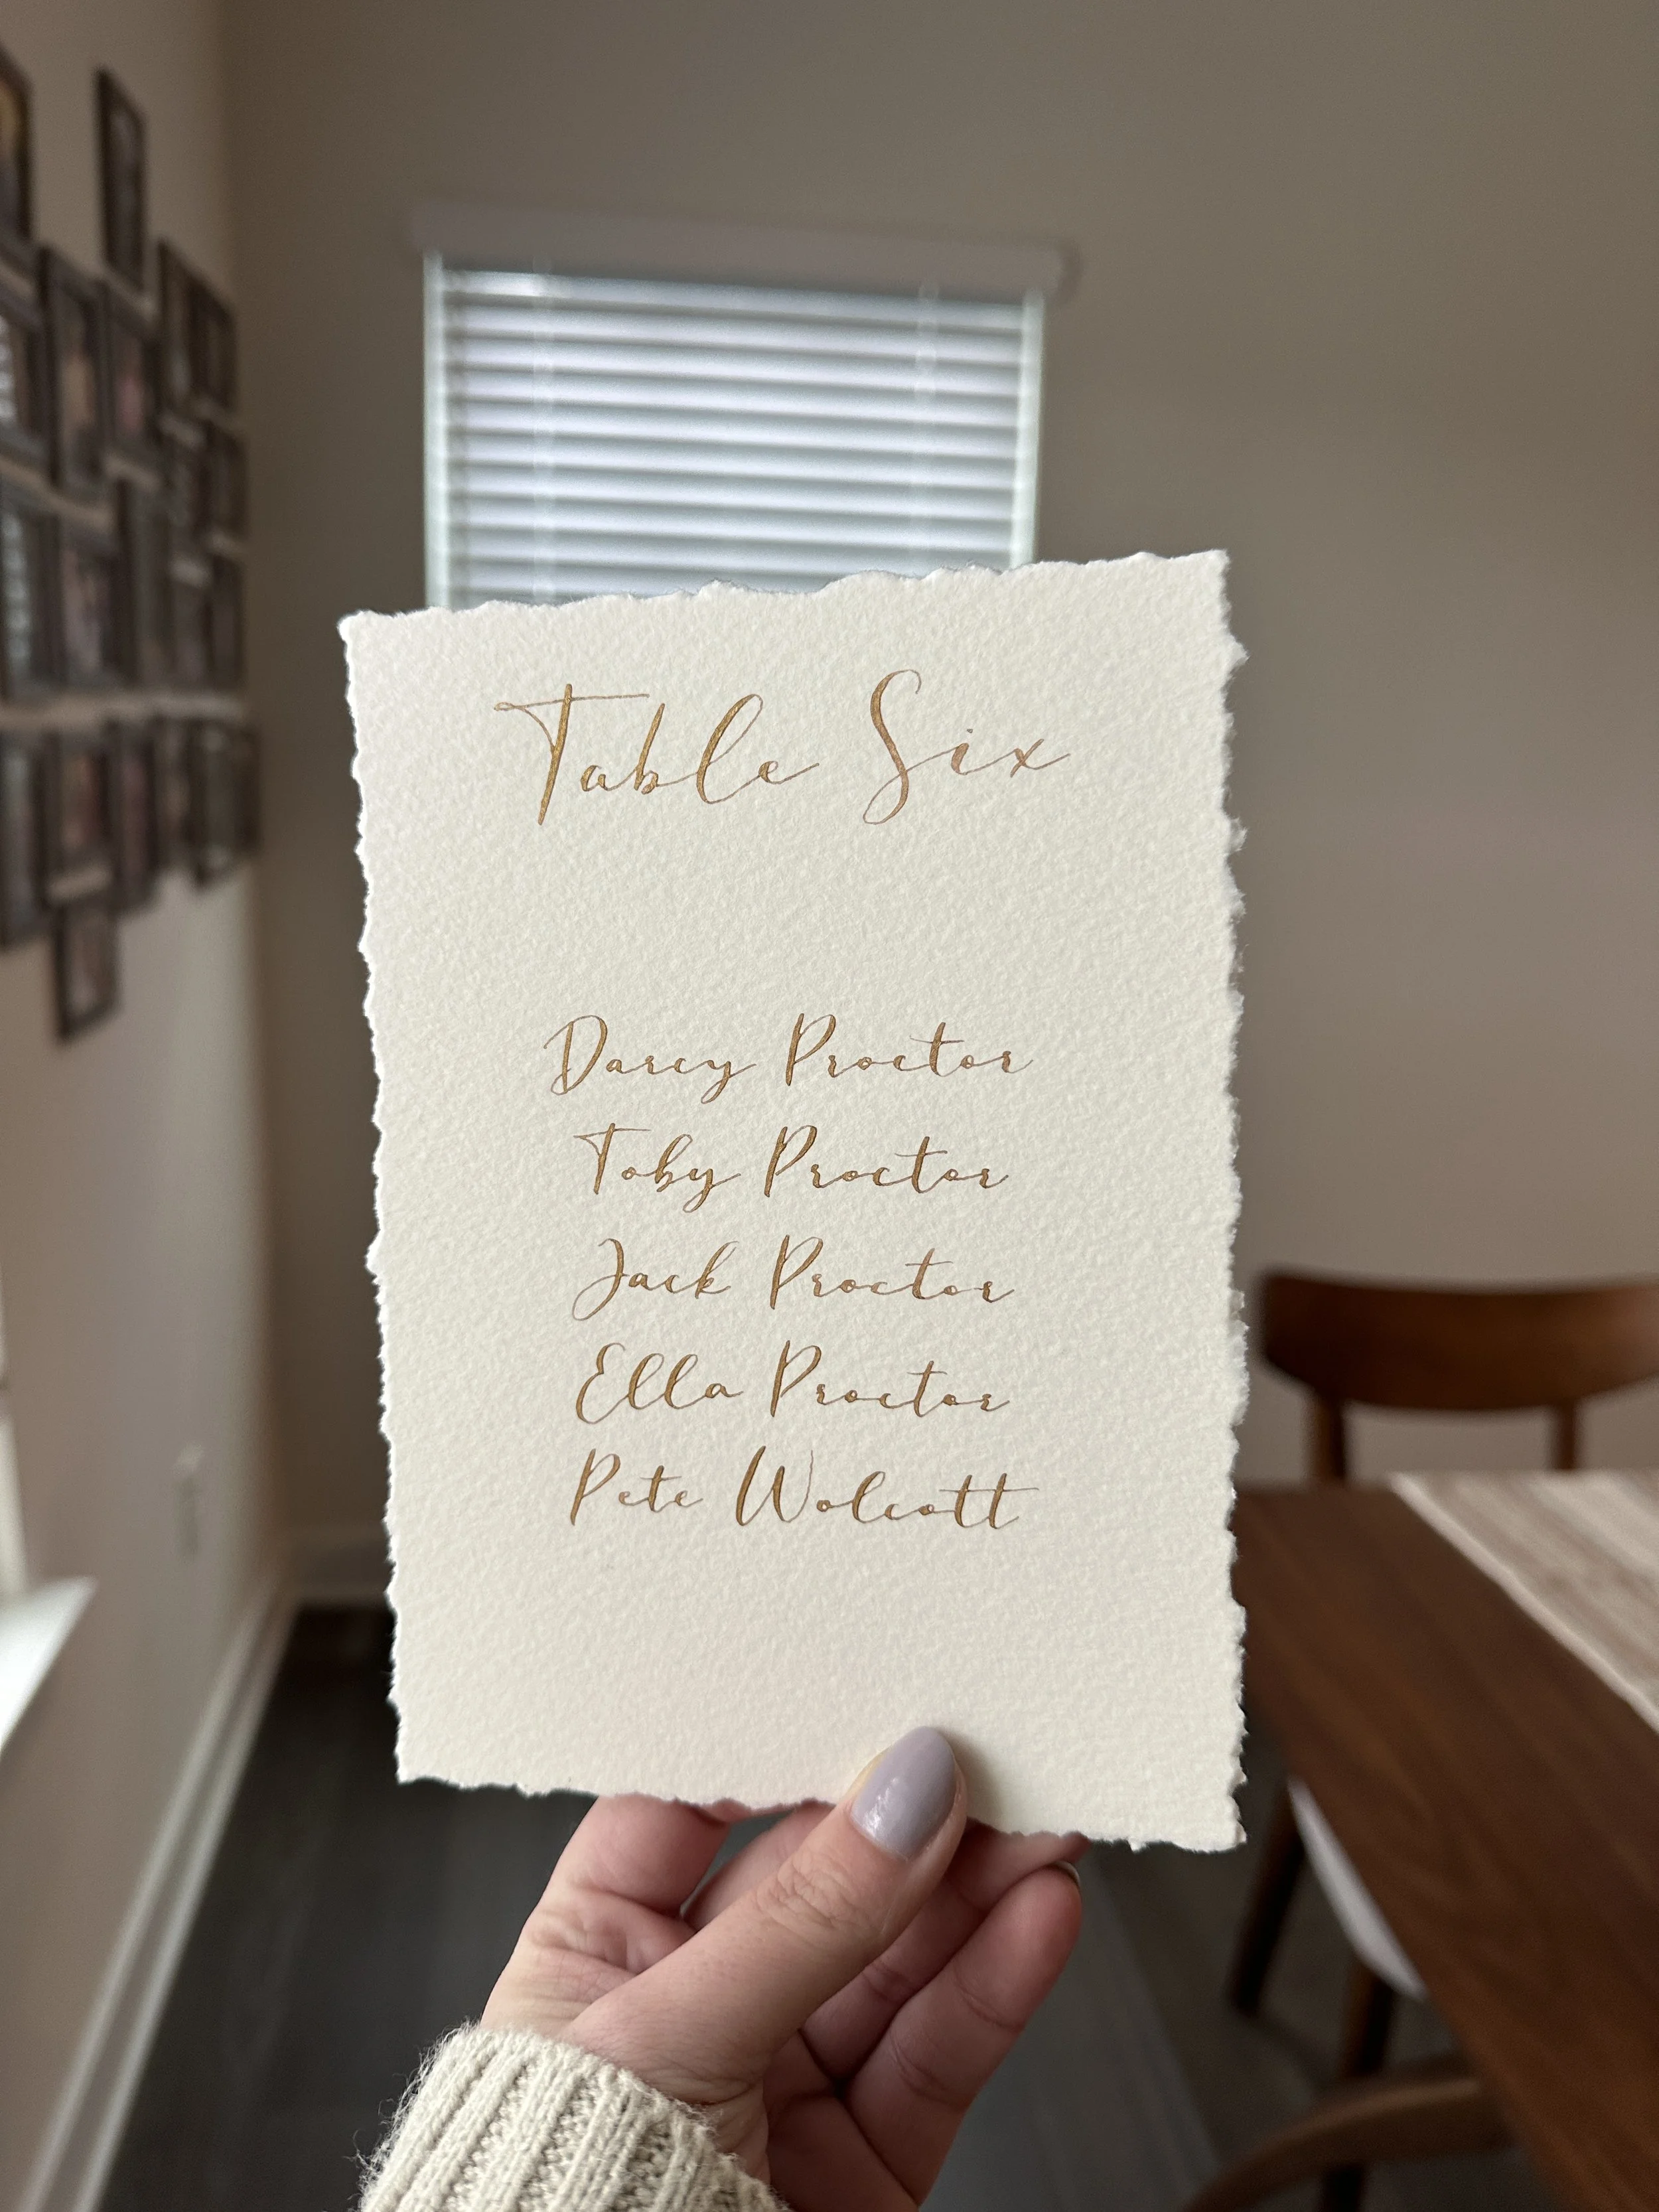 Table Six
Darcy Proctor
Toby Proctor
Jack Proctor
Ella Proctor
Pete Wolcott